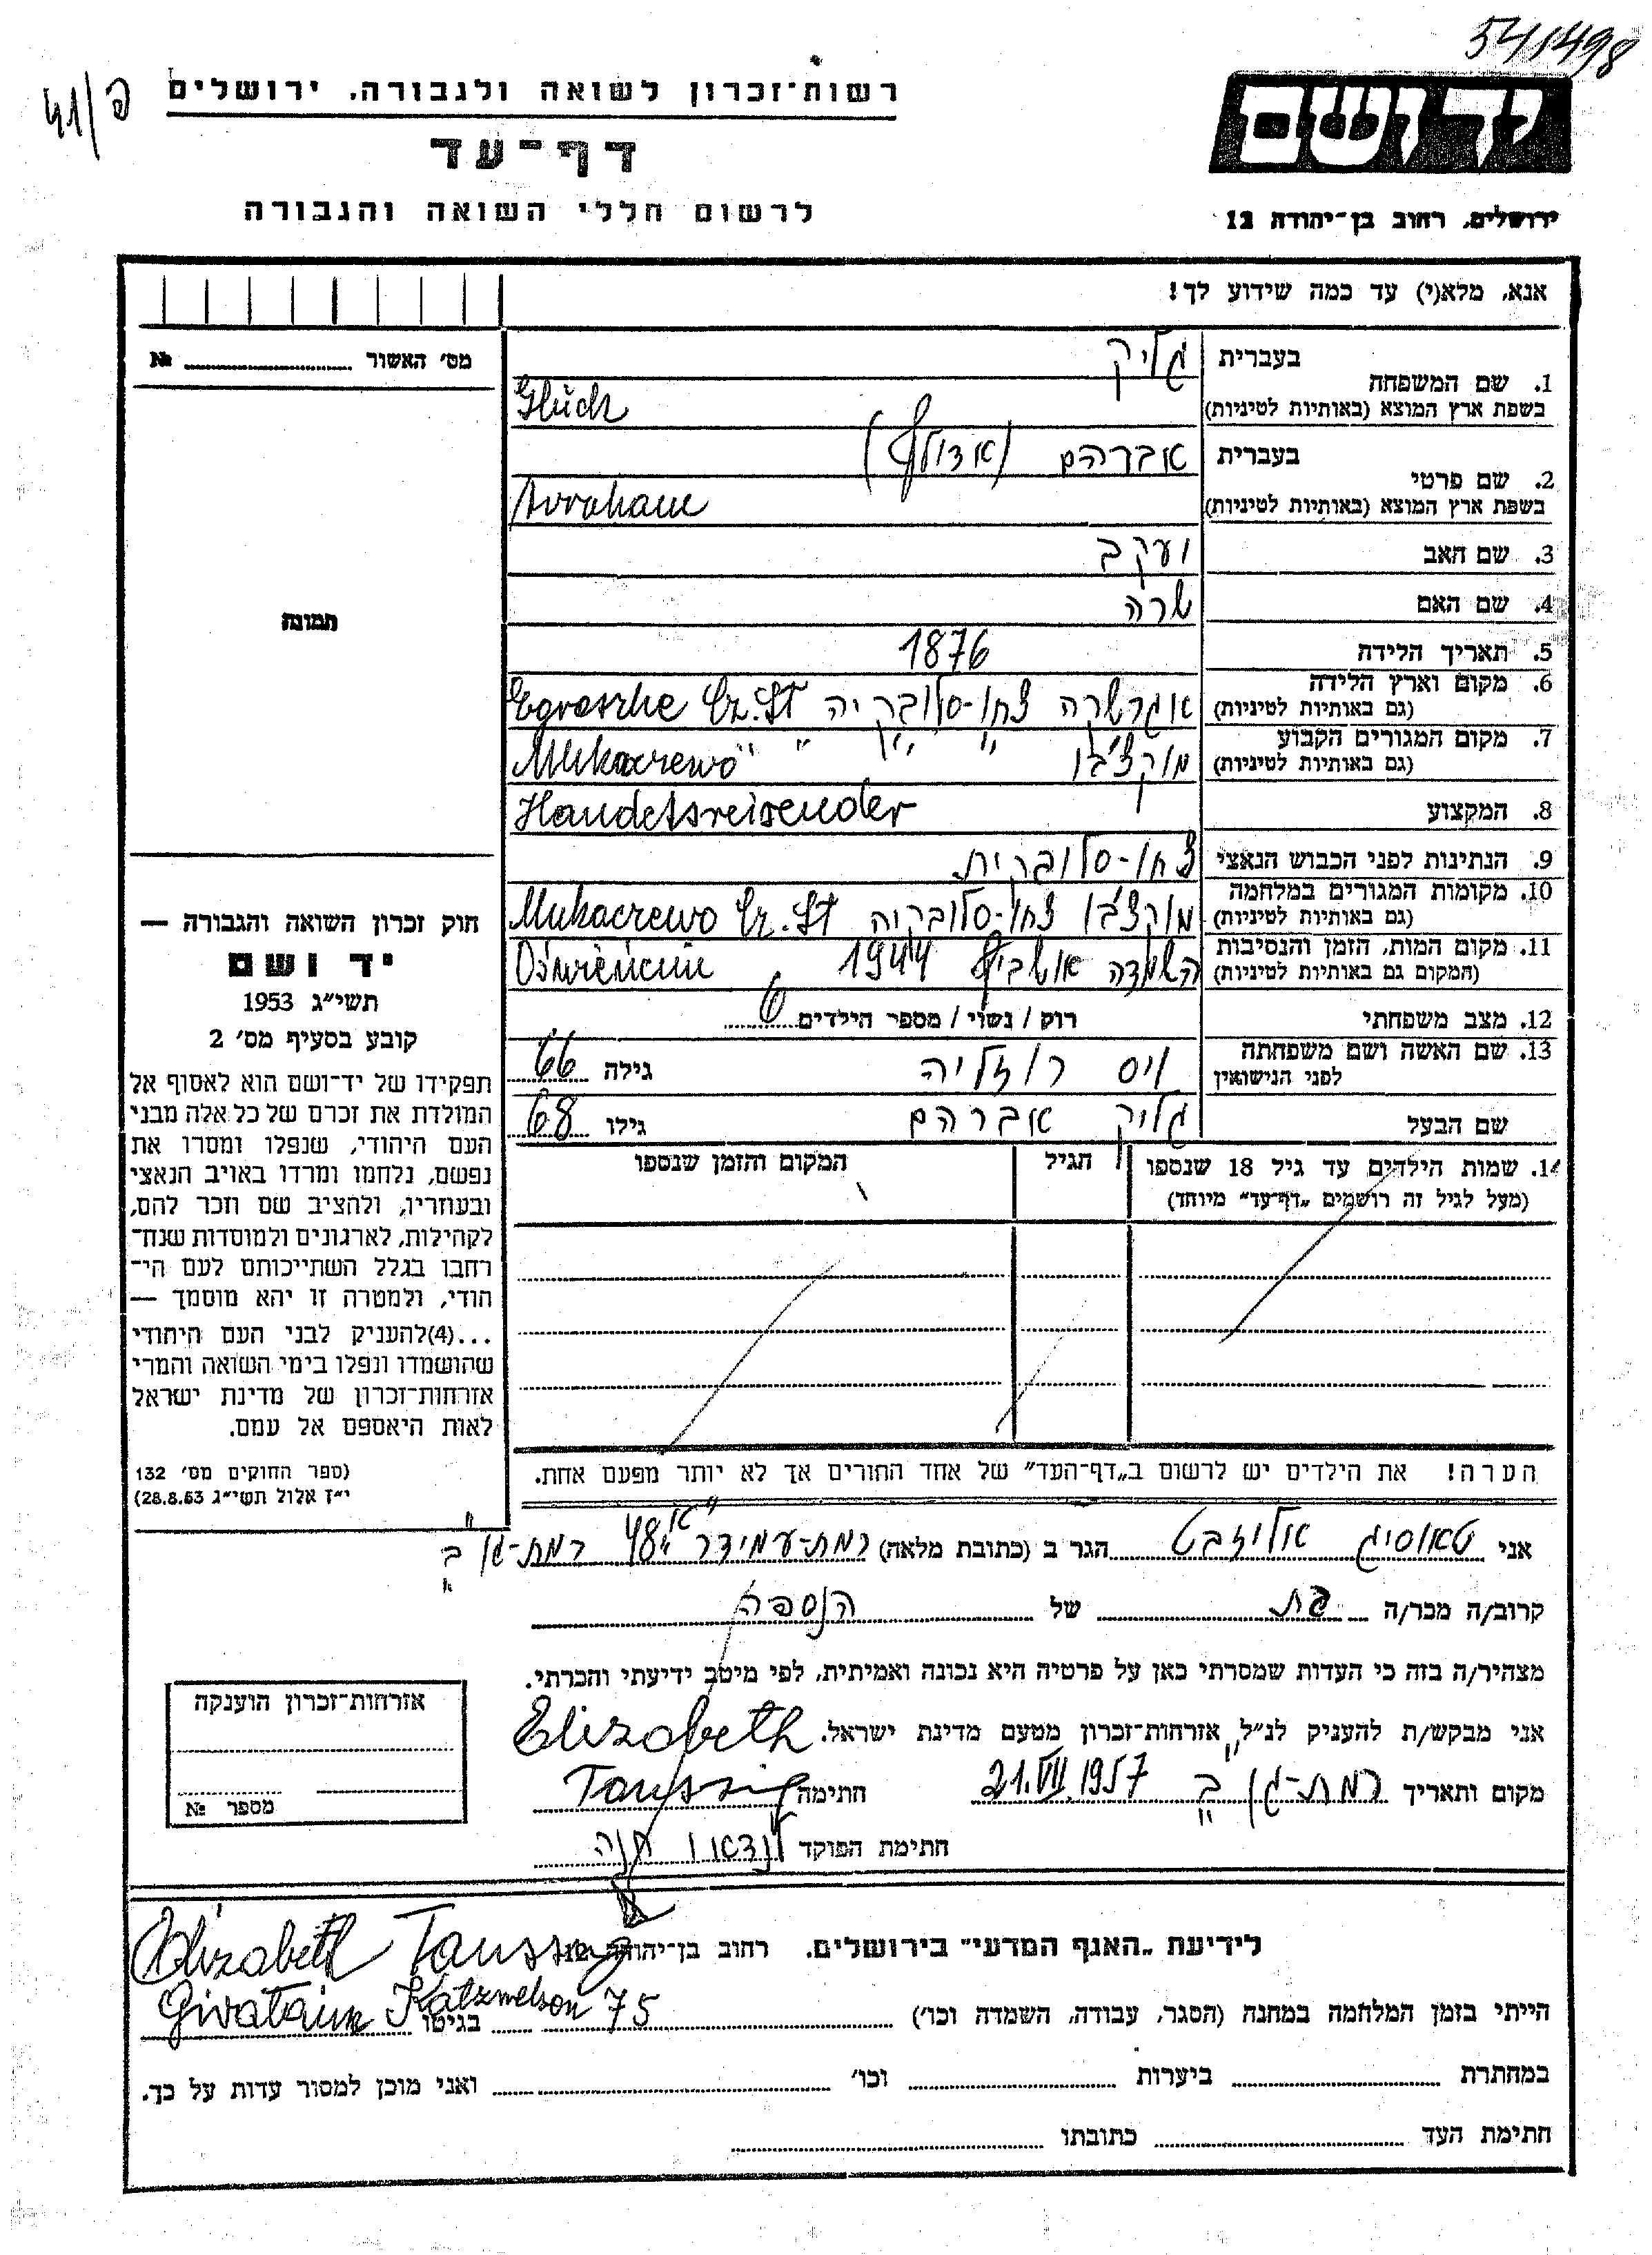 541498
41/פ
רשות-זכרון לשואה ולגבורה, ירושלים
דף-עד
לרשום חללי השואה והגבורה
יד ושם
ירושלים, רחוב בן-יהודה 12
אנא, מלא(י) עד כמה שידוע לך!
מס׳ האשור № 
תמונה
1. שם המשפחה בעברית גליק
בשפת ארץ המוצא (באותיות לטיניות) Glück
2. שם פרטי בעברית אברהם (אדולף)
בשפת ארץ המוצא (באותיות לטיניות) Avraham
3. שם האב יעקב
4. שם האם שרה
5. תאריך הלידה 1876
6. מקום וארץ הלידה (גם באותיות לטיניות) צחו-סלובקיה Cz. Sl
7. מקום המגורים הקבוע (גם באותיות לטיניות) מוקצ׳בו " " " Mukaczewo
8. המקצוע Handelsreisender
9. הנתינות לפני הכבוש הנאצי צחו-סלובקית
10. מקומות המגורים במלחמה (גם באותיות לטיניות) מוקצ׳בו צחו-סלובקיה Mukaczewo Cz. Sl
11. מקום המות, הזמן והנסיבות (המקום גם באותיות לטיניות) השמדה אושביץ 1944 Oświęcim
12. מצב משפחתי רוק / נשוי / מספר הילדים 6
13. שם האשה ושם משפחתה לפני הנישואין ויס רוזליה גילה 66
שם הבעל גליק אברהם גילו 68
14. שמות הילדים עד גיל 18 שנספו הגיל המקום והזמן שנספו
(מעל לגיל זה רושמים "דף-עד" מיוחד)
הערה! את הילדים יש לרשום ב"דף-העד" של אחד החורים אך לא יותר מפעם אחת.
חוק זכרון השואה והגבורה —
יד ושם
תשי״ג 1953
קובע בסעיף מס׳ 2
תפקידו של יד-ושם הוא לאסוף אל
המולדת את זכרם של כל אלה מבני
העם היהודי, שנפלו ומסרו את
נפשם, נלחמו ומרדו באויב הנאצי
ובעוזריו, ולהציב שם וזכר להם,
לקהילות, לארגונים ולמוסדות שנח-
רחבו בגלל השתייכותם לעם הי-
הודי, ולמטרה זו יהא מוסמך —
...(4)להעניק לבני העם היהודי
שהושמדו ונפלו בימי השואה והמרי
אזרחות-זכרון של מדינת ישראל
לאות היאספם אל עמם.
(ספר החוקים מס׳ 132
י״ז אלול תשי״ג 28.8.53)
אני טאוסיג אליזבט הגר ב (כתובת מלאה) רמת-עמידר 48 "א" רמת-גן ב
קרוב/ה מכר/ה בת של הנספה
מצהיר/ה בזה כי העדות שמסרתי כאן על פרטיה היא נכונה ואמיתית, לפי מיטב ידיעתי והכרתי.
אני מבקש/ת להעניק לנ״ל אזרחות-זכרון מטעם מדינת ישראל.
מקום ותאריך רמת-גן ב 21.VII.1957 חתימה Elizabeth Taussig
חתימת הפוקד לנדאו חנה
אזרחות-זכרון הוענקה
מספר №
לידיעת "האגף המדעי" בירושלים, רחוב בן-יהודה 12
Elizabeth Taussig
Givataim Katznelson 75
הייתי בזמן המלחמה במחנה (הסגר, עבודה, השמדה וכו׳) בגיטו
במחתרת ביערות וכו׳ ואני מוכן למסור עדות על כך.
חתימת העד כתובתו